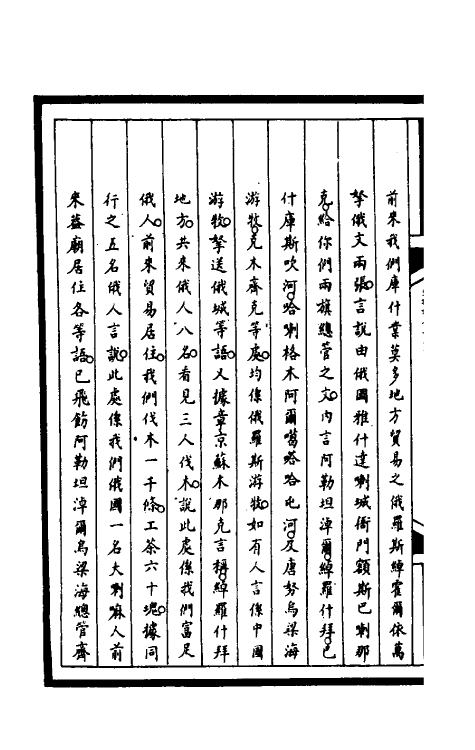 前來我們庫什業莫多地方貿易之俄羅斯綽霍爾依萬
拏俄文兩張。言說由俄國雅什達喇城衙門額斯巴喇那
克。給你們兩旗總管之文。內言阿勒坦淖爾。綽羅什拜。巴
什庫斯吹河。哈喇格木阿爾噶嗒哈屯河。及唐努烏梁海
游牧。克木齊克等處。均係俄羅斯游牧。如有人言係中國
游牧。拏送俄城等語。又據章京蘇木那克言稱。綽羅什拜
地方。共來俄人八名。看見三人伐木。說此處係我們富足
俄人。前來貿易居住。我們伐木一千條。工茶六十塊。據同
行之五名俄人言說。此處係我們俄國一名大喇嘛人前
來蓋廟居住各等語。已飛飭阿勒坦淖爾烏梁海總管齊